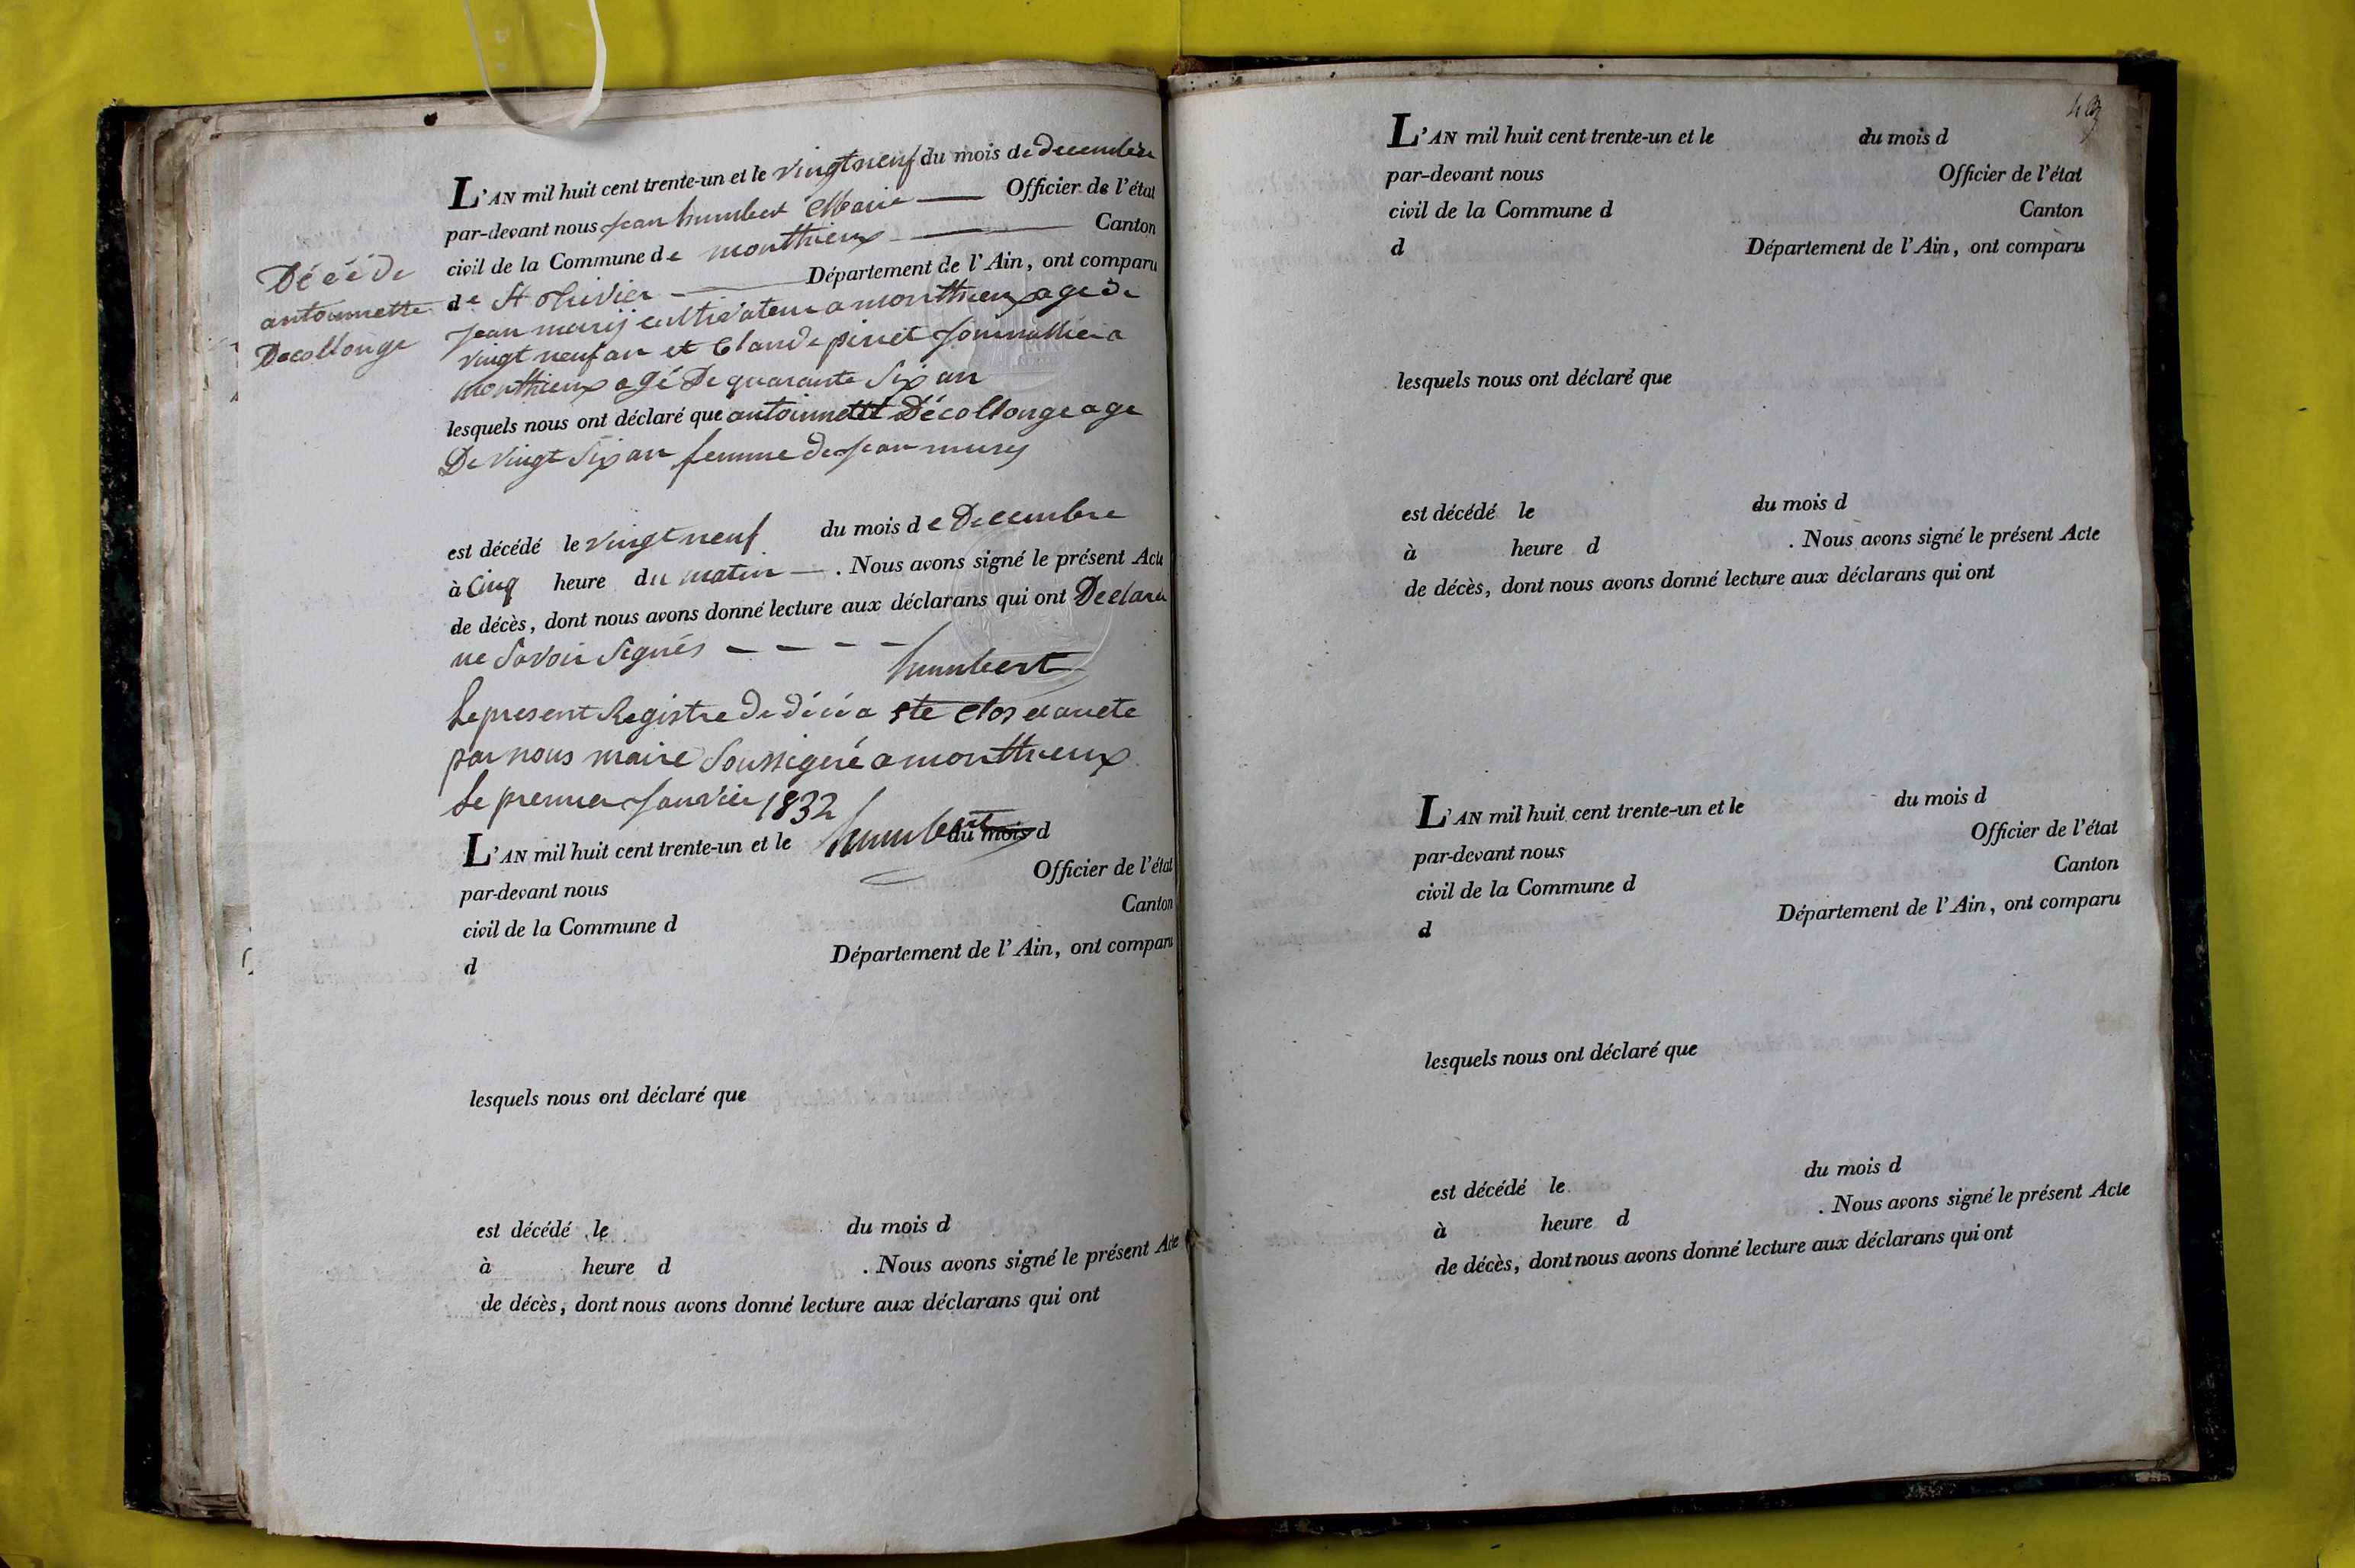 L'AN mil huit cent trente-un et le vingt neuf du mois de Decembre
par-devant nous Jean humbert Maire Officier de l'état
civil de la Commune de monthieux Canton
de St trivier Département de l'Ain, ont comparu
Jean murij cultivateur a monthieux age de
vingt neuf an et Claude pinet Journallier a
monthieux agé De quarante Six an
lesquels nous ont déclaré que antoinnette Décollonge age
De vingt Six an femme de Jean murij
Décé de
antoinnette
Decollonge
est décédé le vingt neuf du mois de Decembre
à Cinq heure du matin . Nous avons signé le présent Acte
de décès, dont nous avons donné lecture aux déclarans qui ont Declaré
ne Savoir Signés
humbert
Le present Registre de décé a ete Clos et arrete
par nous maire Soussigné a monthieux
Le premier Janvier 1832
humbert
L'AN mil huit cent trente-un et le du mois d
par-devant nous Officier de l'état
civil de la Commune d Canton
d Département de l'Ain, ont comparu
lesquels nous ont déclaré que
est décédé le du mois d
à heure d . Nous avons signé le présent Acte
de décès, dont nous avons donné lecture aux déclarans qui ont
L'AN mil huit cent trente-un et le du mois d
par-devant nous Officier de l'état
civil de la Commune d Canton
d Département de l'Ain, ont comparu
lesquels nous ont déclaré que
est décédé le du mois d
à heure d . Nous avons signé le présent Acte
de décès, dont nous avons donné lecture aux déclarans qui ont
L'AN mil huit cent trente-un et le du mois d
par-devant nous Officier de l'état
civil de la Commune d Canton
d Département de l'Ain, ont comparu
lesquels nous ont déclaré que
est décédé le du mois d
à heure d . Nous avons signé le présent Acte
de décès, dont nous avons donné lecture aux déclarans qui ont